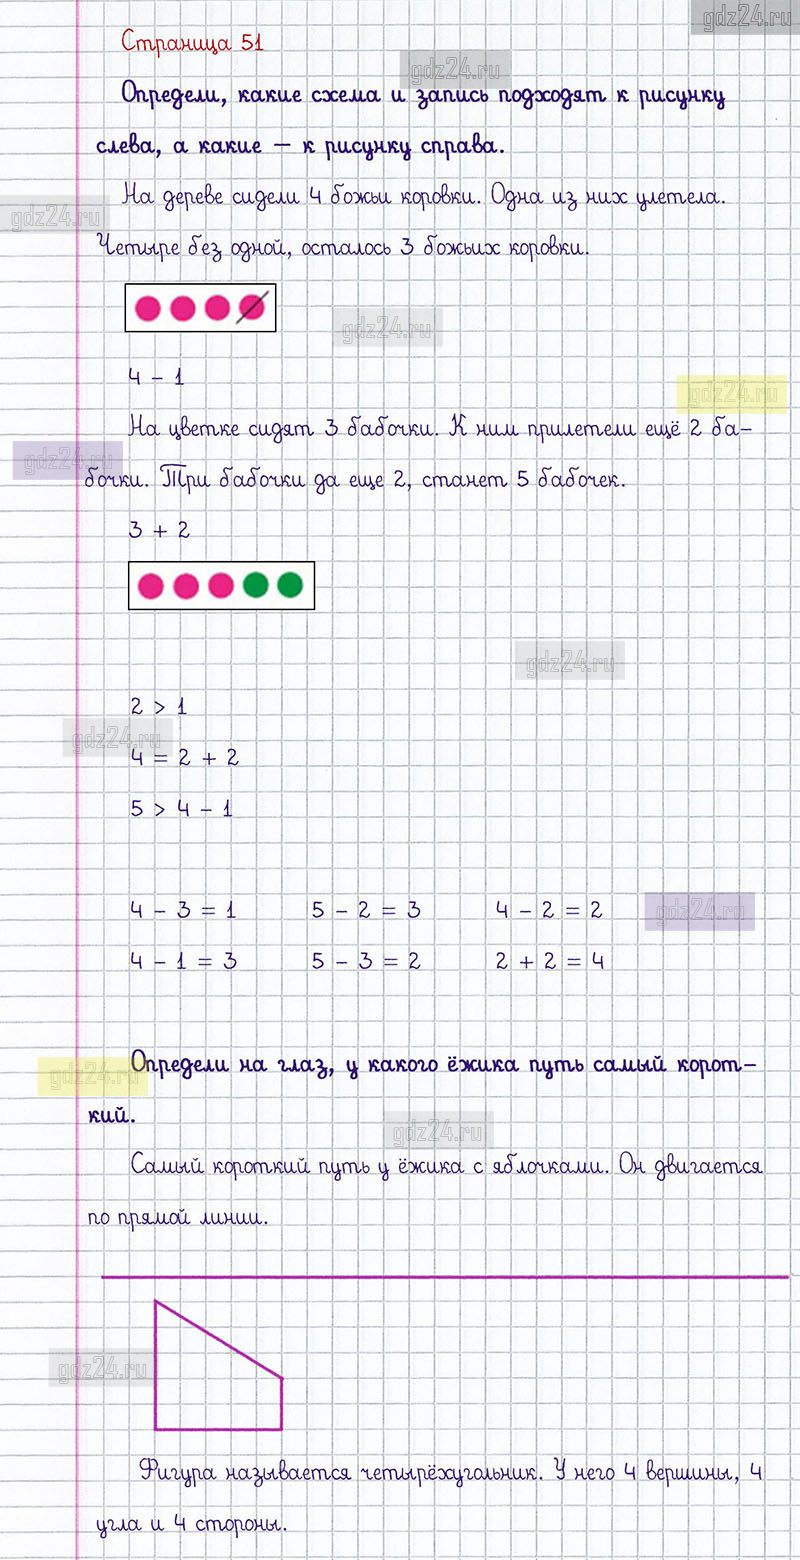 gdz24.ru
Страница 51
gdz24.ru
Определи, какие схема и запись подходят к рисунку
слева, а какие – к рисунку справа.
На дереве сидели 4 божьи коровки. Одна из них улетела.
gdz24.ru
Четыре без одной, осталось 3 божьих коровки.
gdz24.ru
4 - 1
gdz24.ru
На цветке сидят 3 бабочки. К ним прилетели ещё 2 ба-
gdz24.ru
бочки. Три бабочки да еще 2, станет 5 бабочек.
3 + 2
gdz24.ru
2 > 1
gdz24.ru
4 = 2 + 2
5 > 4 - 1
4 - 3 = 1 5 - 2 = 3 4 - 2 = 2
gdz24.ru
4 - 1 = 3 5 - 3 = 2 2 + 2 = 4
Определи на глаз, у какого ёжика путь самый корот-
gdz24.ru
кий.
gdz24.ru
Самый короткий путь у ёжика с яблочками. Он двигается
по прямой линии.
gdz24.ru
Фигура называется четырёхугольник. У него 4 вершины, 4
угла и 4 стороны.